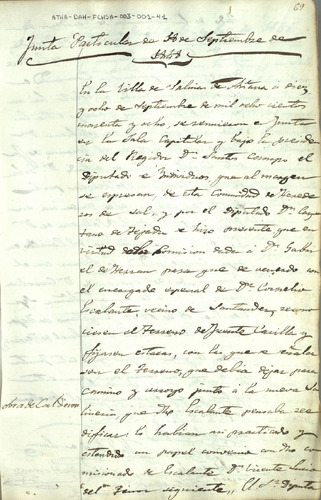 ATHA-DAH-FCHSA-003-001-41
69
Junta Particular de 18 de Septiembre de
1848
En la Villa de Salinas de Añana a diez
y ocho de Septiembre de mil ocho cientos
cuarenta y ocho se reunieron en Junta
en la Sala Capitular y bajo la presiden
cia del Regidor Dn. Santos el
Diputado e Individuos que al margen
se espresan de esta Comunidad de Herede
ros de sal, y por el Diputado Dn. Caye
tano de Tejada se hizo presente que en
virtud de la comision dada a Dn. Gabri
el de Herran para que de acuerdo con
el encargado especial de Dn. Cornelio
Escalante vecino de Santander, recono
ciesen el terreno de Fuente Cecilla y
fijasen estacas, con las que se señala
sen el terreno, que debia dejar para
camino y arroyo junto a la nueva Sa
linería que dho Escalante pensaba
edificar: lo habian asi practicado y
estendido un papel convenio con dho co
misionado de Escalante Dn. Vicente
del tenor siguiente. El Sr. Diputa